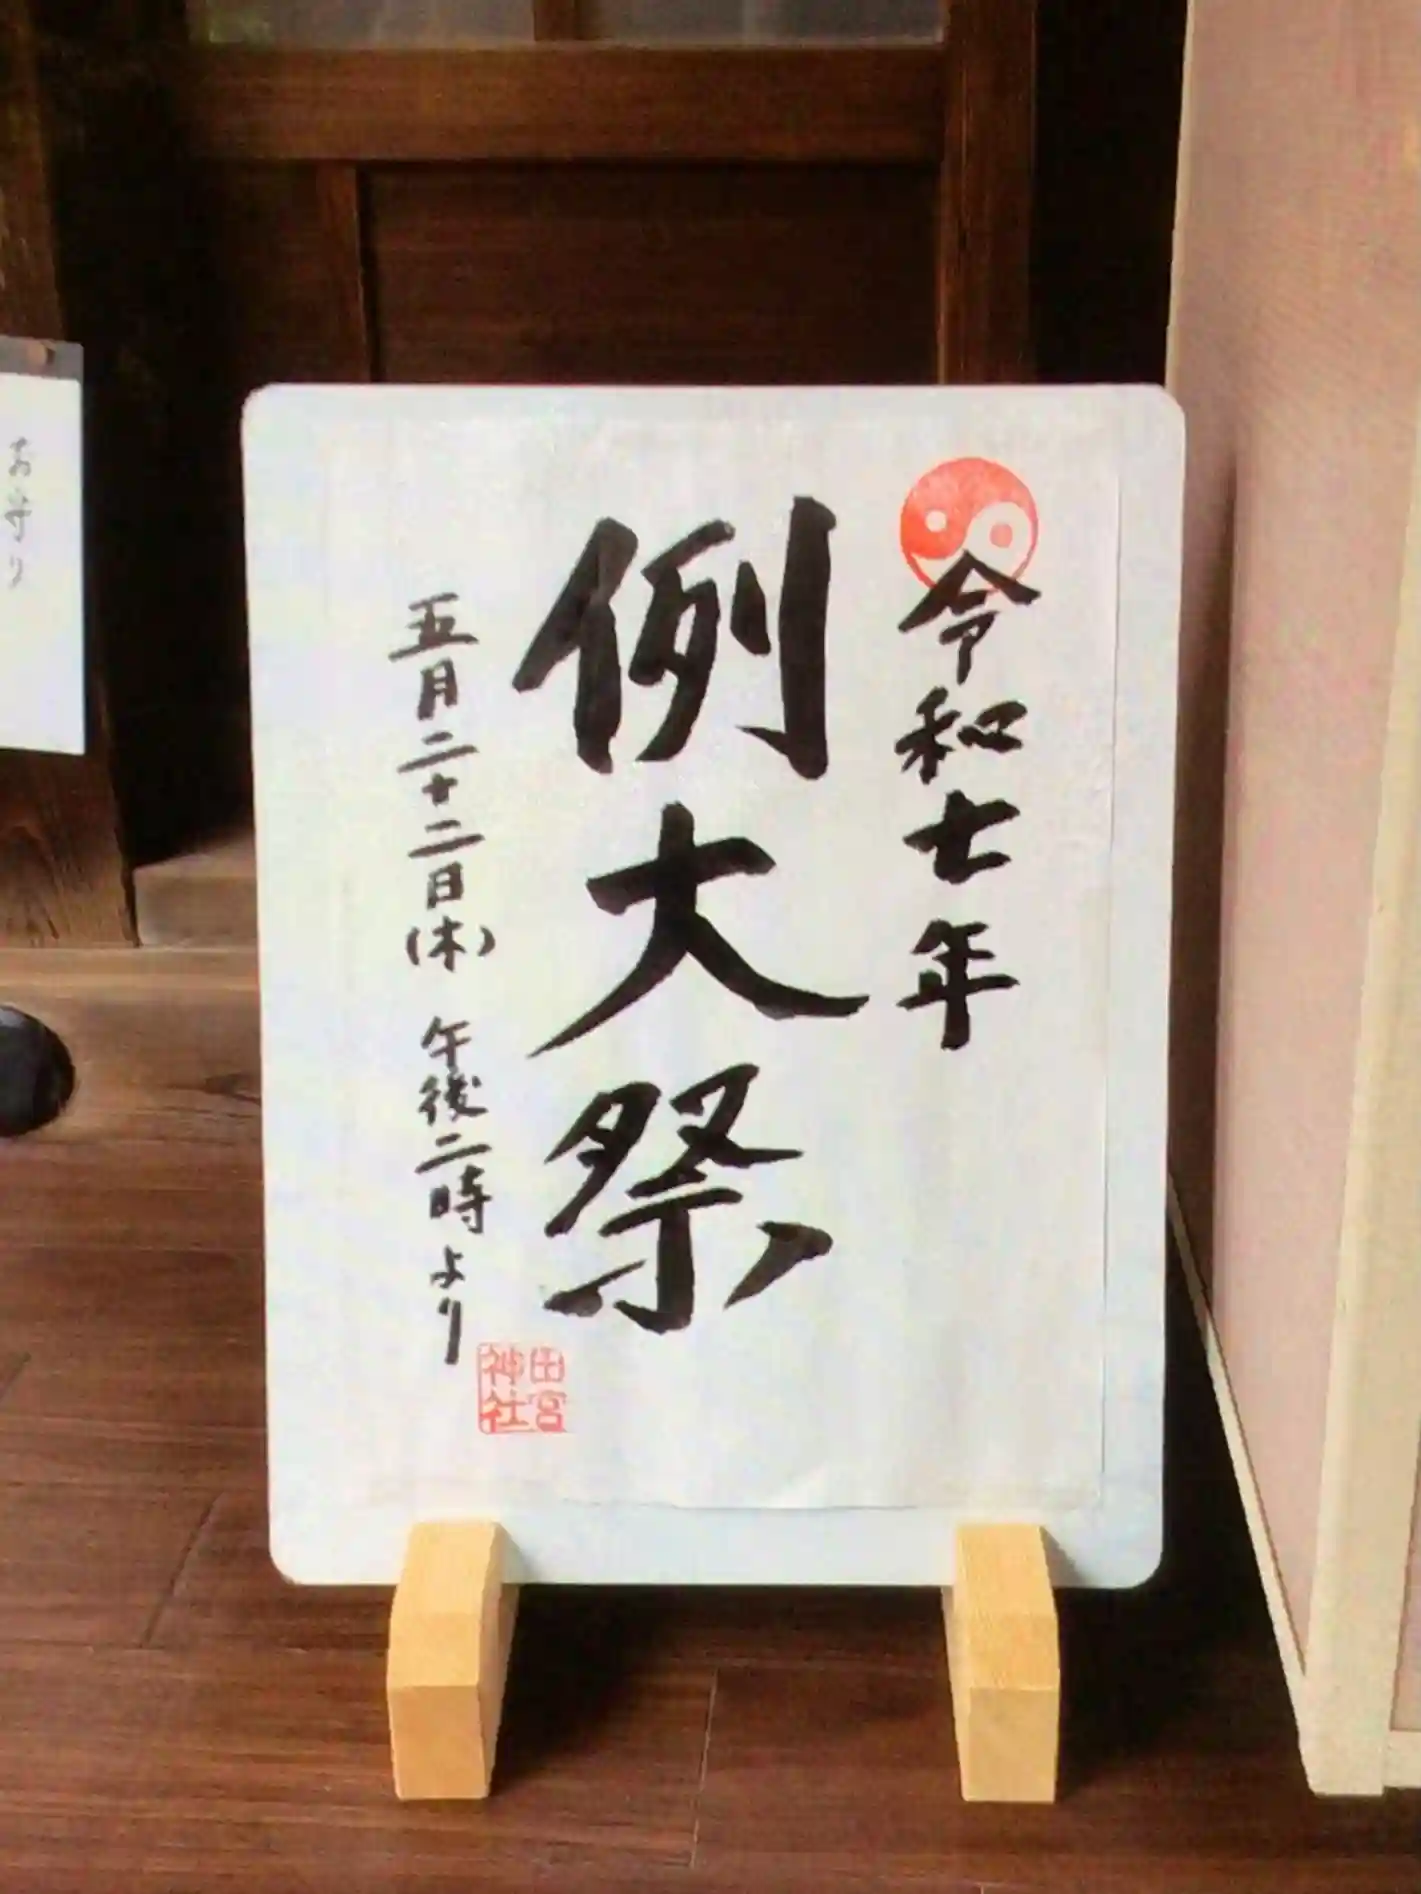 令和七年
例大祭
五月二十二日(木) 午後二時より
田宮
神社
お守り